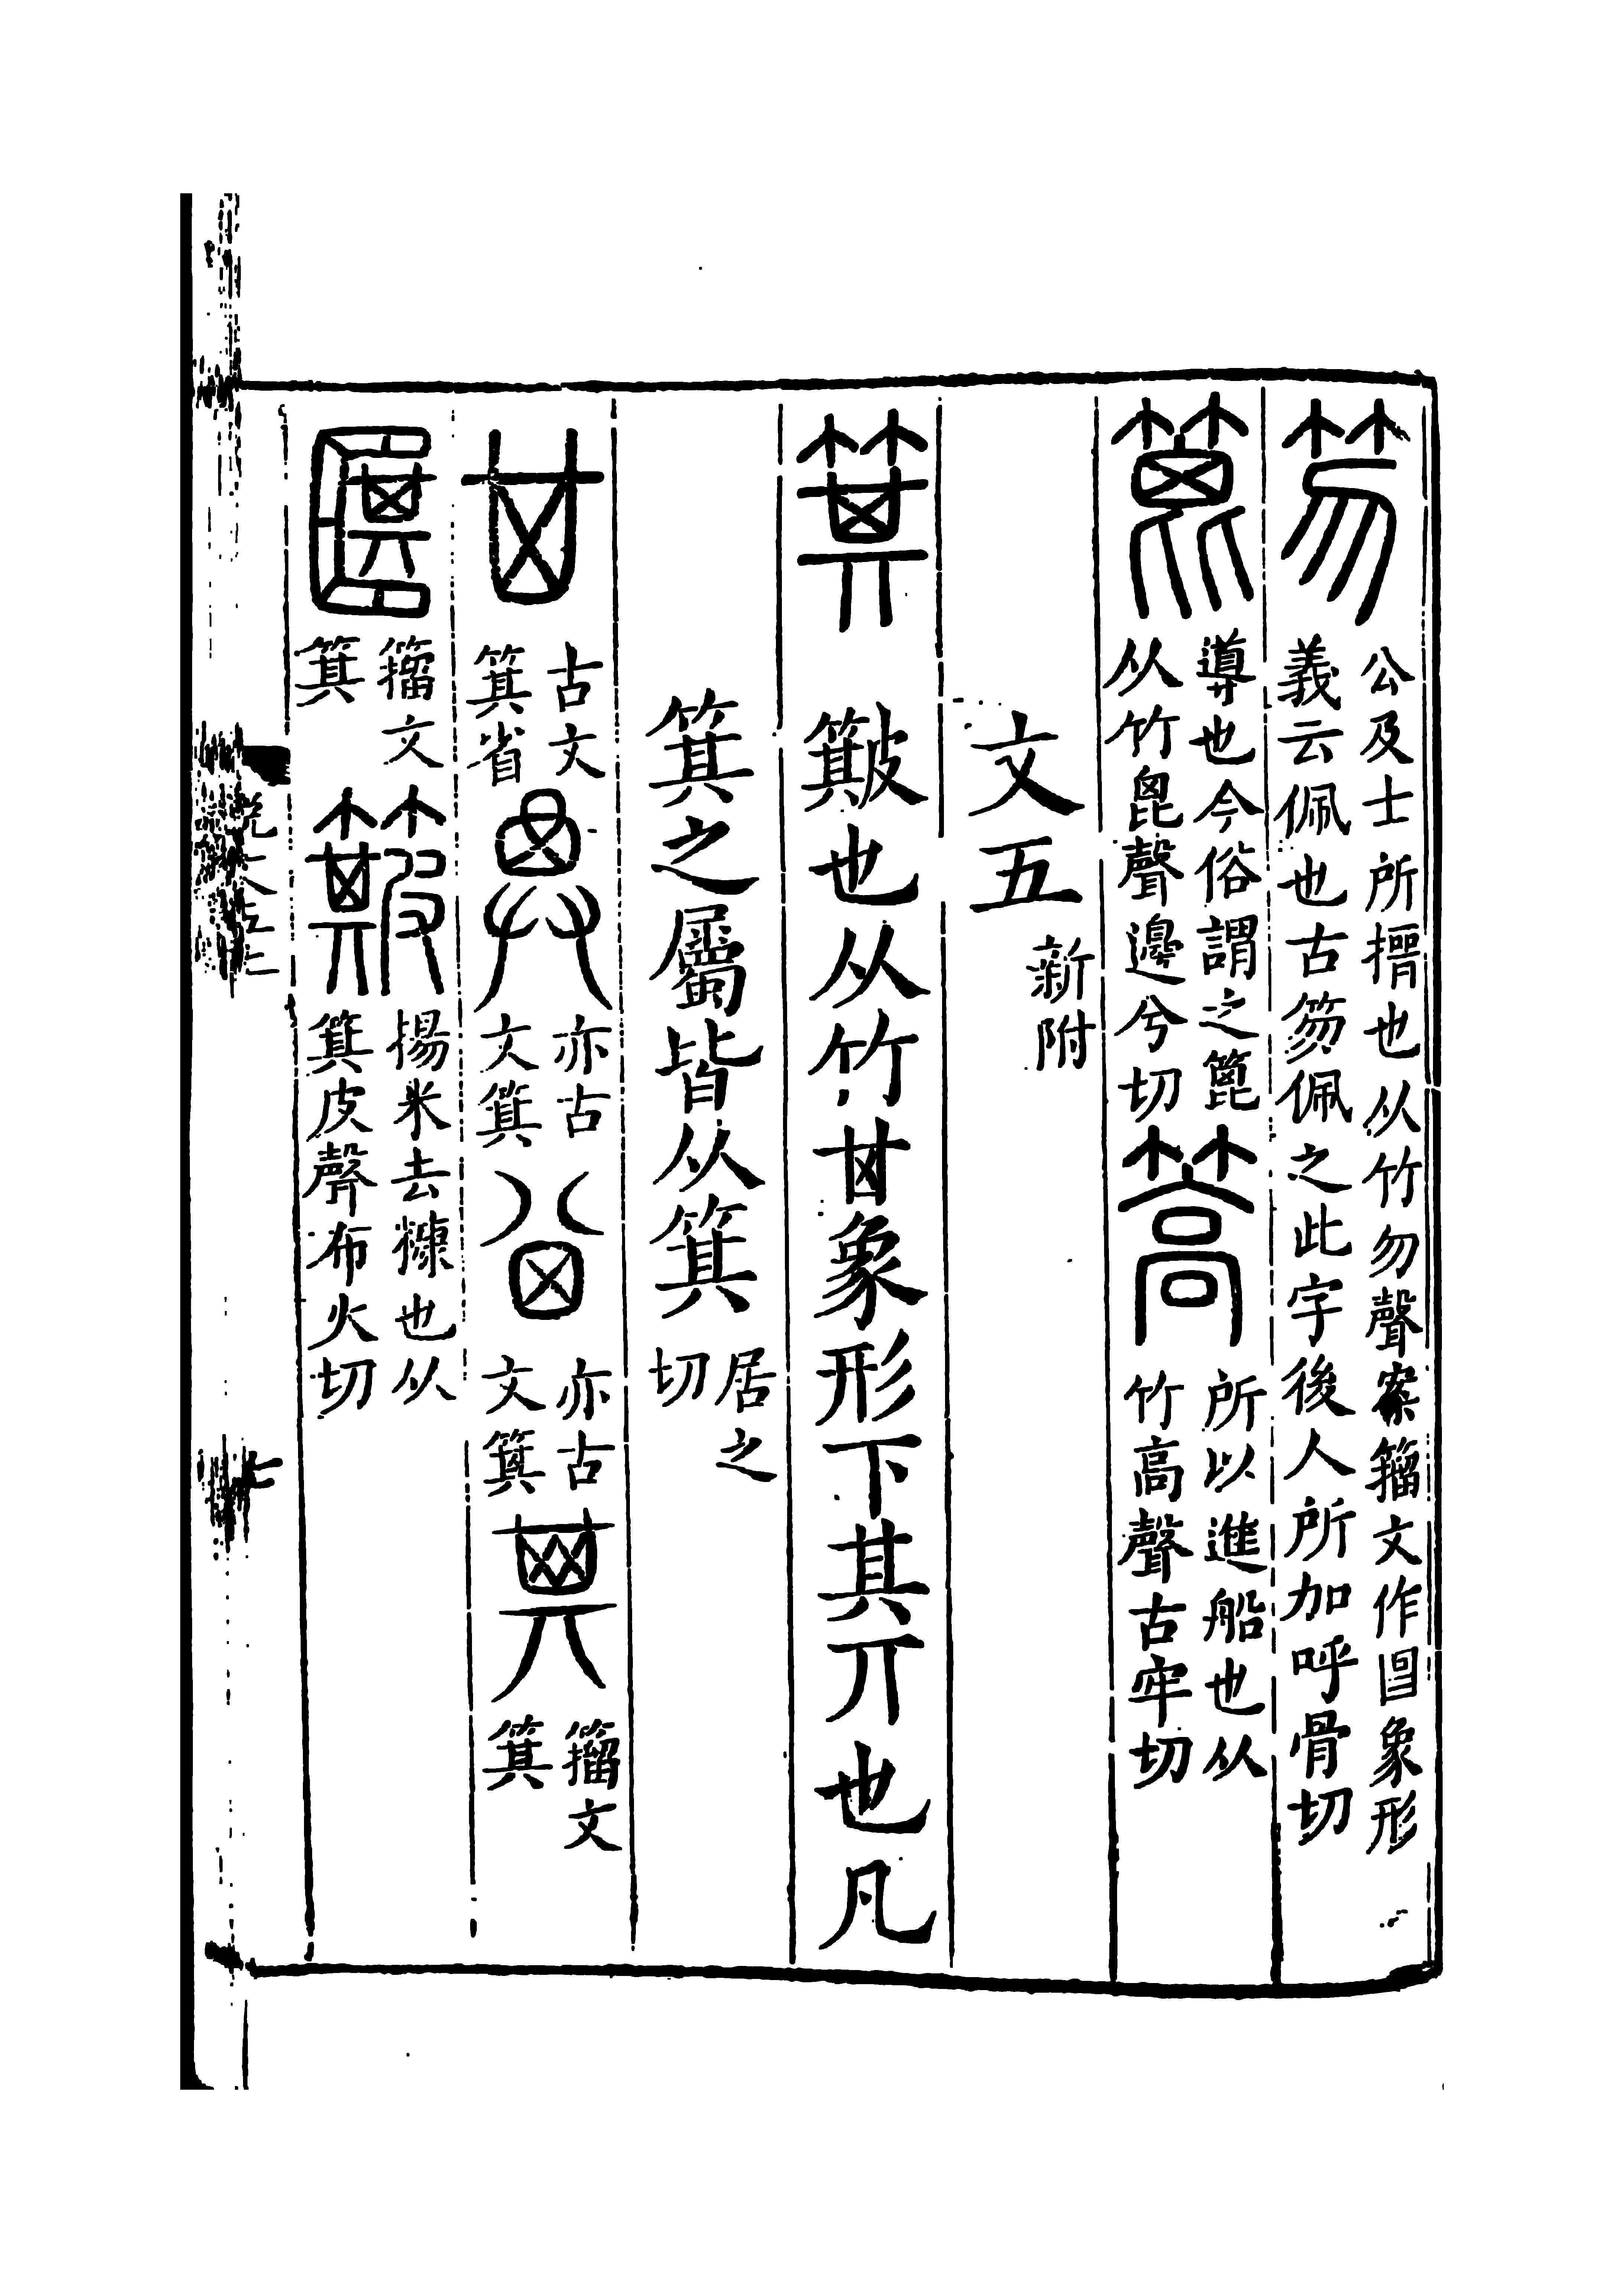 笏公及士所搢也从竹勿聲案籀文作𠥓象形
義云佩也古笏佩之此字後人所加呼骨切
篦導也今俗謂之篦
从竹𣬉聲邊兮切
篙所以進船也从
竹高聲古牢切
文五新附
箕簸也从竹𠀠象形下其丌也凡
箕之屬皆从箕居之切
𠀠古文箕省
亦古文箕
亦古文箕
籀文箕
籀文箕
簸揚米去糠也从
箕皮聲布火切
說文五上
七